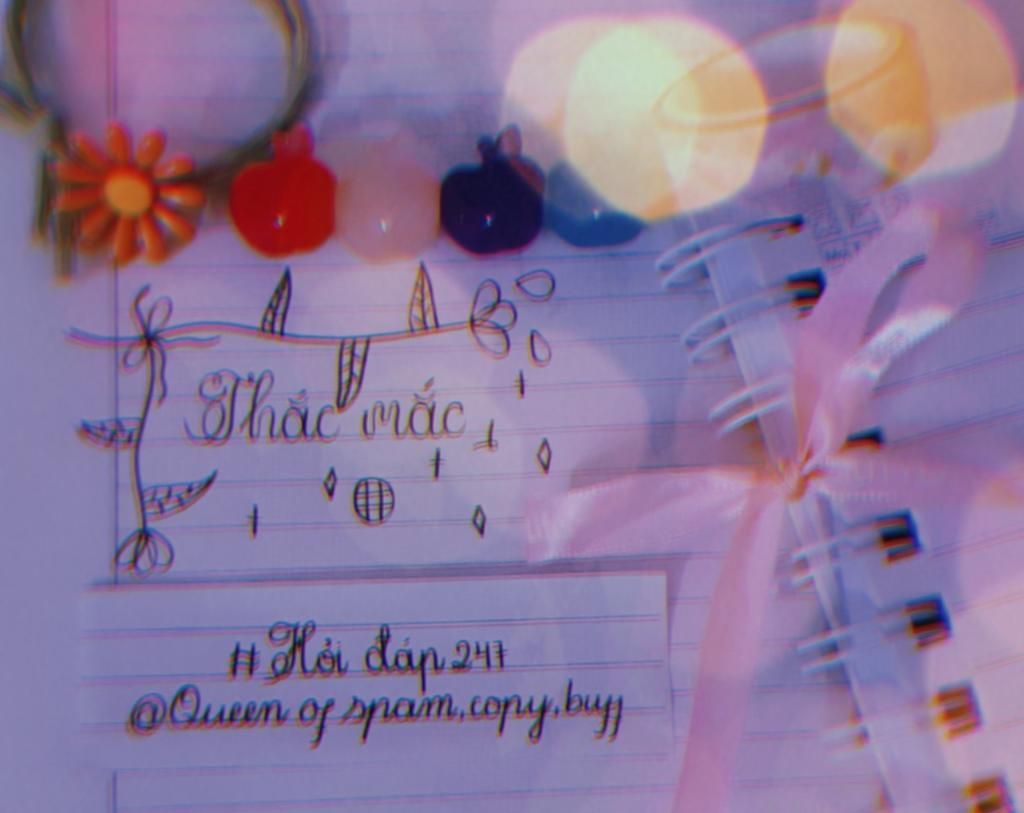 Thắc mắc
#Hỏi đáp 247
@Queen of spam,copy,buff